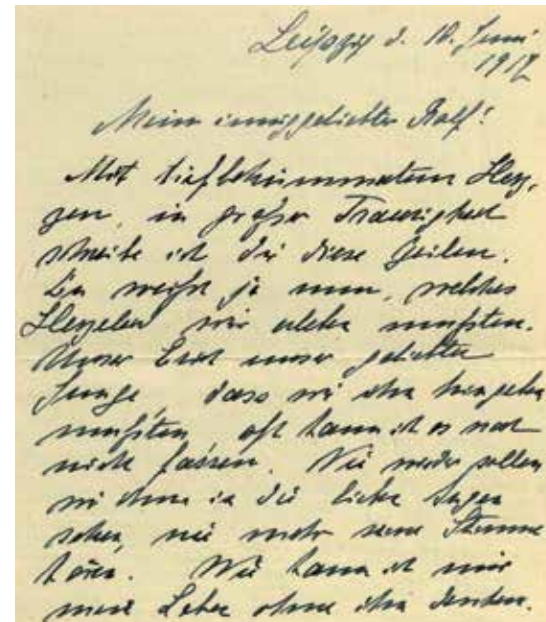 Leipzig d. 18. Juni
1917
Mein inniggeliebter Ralf!
Mit tiefbekümmertem Her-
zen, in großer Traurigkeit
schreibe ich dir diese Zeilen.
Du weißt ja nun, welches
Herzeleid wir erleben mußten.
Unser Ernst unser geliebter
Junge, dass wir ihn hingeben
mußten, oft kann ich es noch
nicht fassen. Nie wieder sollen
wir ihm in die lieben Augen
sehen, nie mehr seine Stimme
hören. Wie kann ich mir
mein Leben ohne ihn denken.